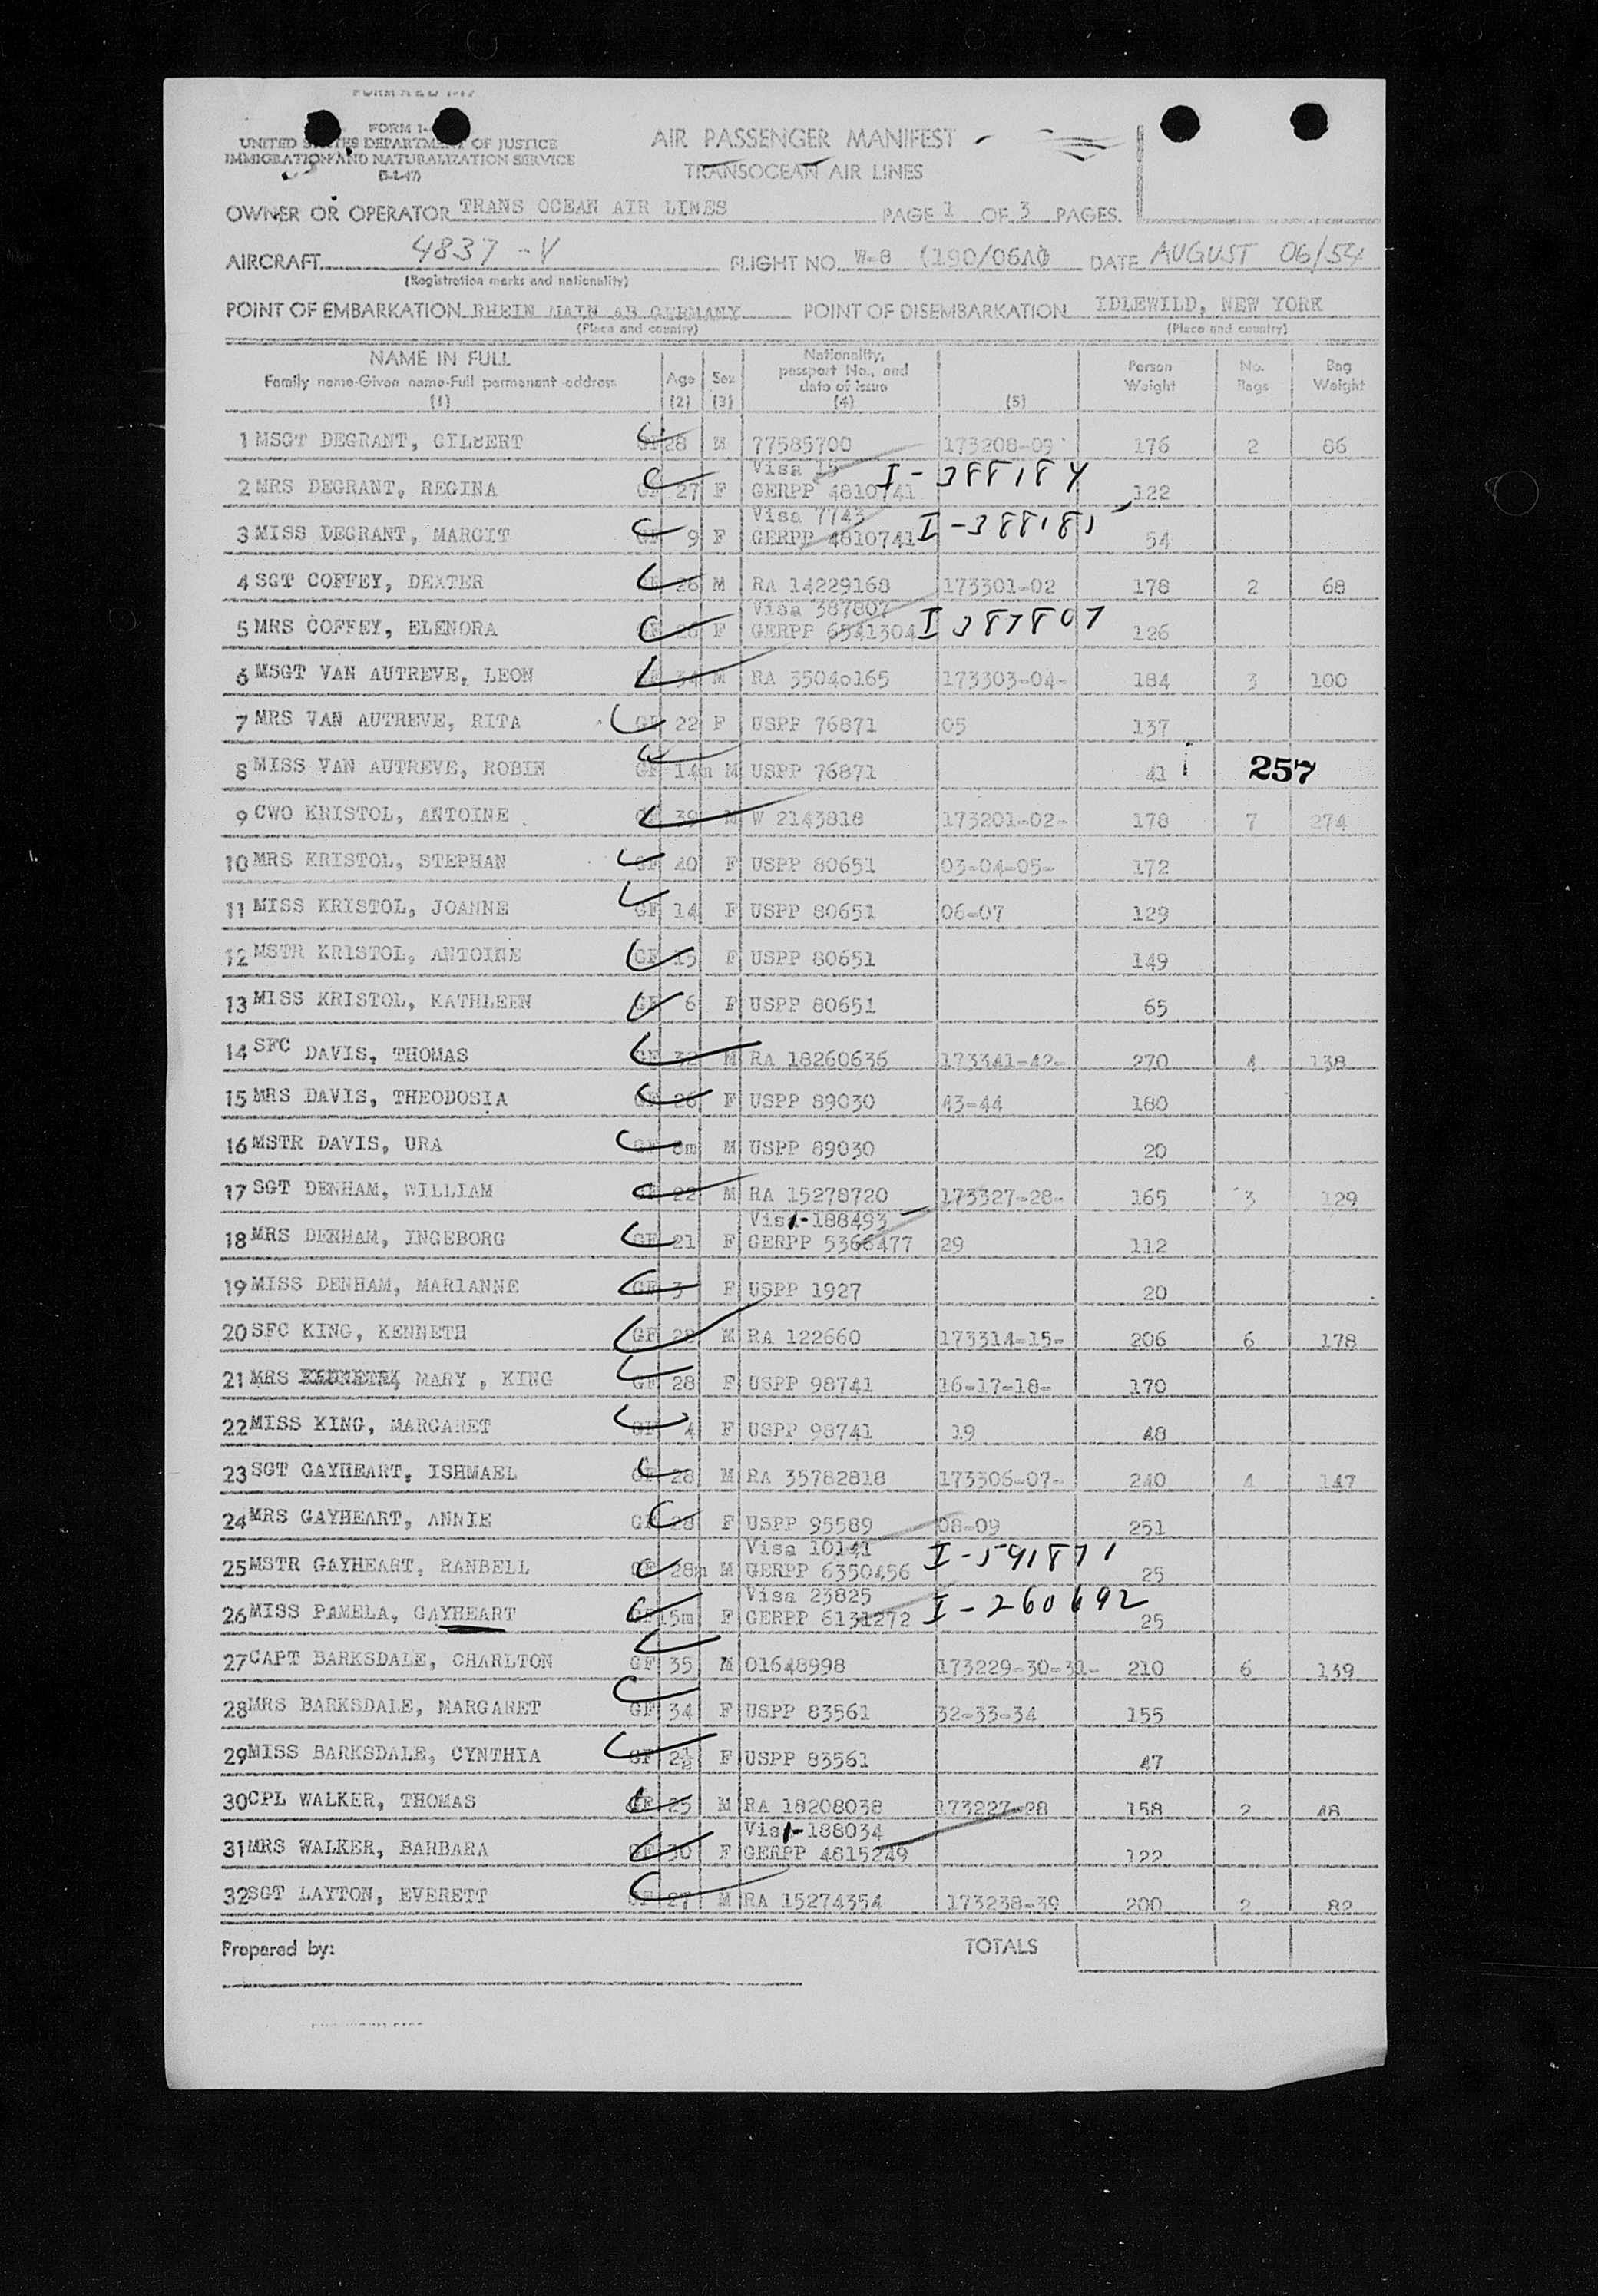 FORM I-
UNITED STATES DEPARTMENT OF JUSTICE
IMMIGRATION AND NATURALIZATION SERVICE
AIR PASSENGER MANIFEST
TRANSOCEAN AIR LINES
OWNER OR OPERATOR TRANS OCEAN AIR LINES PAGE 1 OF 3 PAGES.
AIRCRAFT 4837-V FLIGHT NO. W-8 (190/06A DATE AUGUST 06/54
(Registration marks and nationality)
POINT OF EMBARKATION RHEIN MAIN AB GERMANY POINT OF DISEMBARKATION IDLEWILD, NEW YORK
(Place and country) (Place and country)
NAME IN FULL Family name-Given name-Full permanent address (1) Age (2) Sex (3) Nationality, passport No., and date of issue (4) (5) Person Weight No. Bags Bag Weight
1 MSGT DEGRANT, GILBERT GF 28 M 77585700 173208-09 176 2 86
Visa 15 I-388184
2 MRS DEGRANT, REGINA GF 27 F GERPP 4810741 122
Visa 7743 I-388185
3 MISS DEGRANT, MARGIT GF 9 F GERPP 4810741 54
4 SGT COFFEY, DEXTER GF 26 M RA 14229168 173301-02 178 2 68
Visa 387807 I 387807
5 MRS COFFEY, ELENORA GF 26 F GERPP 6541304 126
6 MSGT VAN AUTREVE, LEON GF 34 M RA 35040165 173303-04- 184 3 100
7 MRS VAN AUTREVE, RITA GF 22 F USPP 76871 05 137
8 MISS VAN AUTREVE, ROBIN GF 14m M USPP 76871 41 257
9 CWO KRISTOL, ANTOINE GF 39 M W 2143818 173201-02- 178 7 274
10 MRS KRISTOL, STEPHAN GF 40 F USPP 80651 03-04-05- 172
11 MISS KRISTOL, JOANNE GF 14 F USPP 80651 06-07 129
12 MSTR KRISTOL, ANTOINE GF 15 F USPP 80651 149
13 MISS KRISTOL, KATHLEEN GF 6 F USPP 80651 65
14 SFC DAVIS, THOMAS GF 32 M RA 18260635 173341-42- 270 4 138
15 MRS DAVIS, THEODOSIA GF 26 F USPP 89030 43-44 180
16 MSTR DAVIS, URA GF 8m M USPP 89030 20
17 SGT DENHAM, WILLIAM GF 22 M RA 15278720 173327-28- 165 3 129
VisI-188493
18 MRS DENHAM, INGEBORG GF 21 F GERPP 5366477 29 112
19 MISS DENHAM, MARIANNE GF 3 F USPP 1927 20
20 SFC KING, KENNETH GF 28 M RA 122660 173314-15- 206 6 178
21 MRS KENNETH, MARY , KING GF 28 F USPP 98741 16-17-18- 170
22 MISS KING, MARGARET GF 4 F USPP 98741 19 48
23 SGT GAYHEART, ISHMAEL GF 28 M RA 35782818 173306-07- 240 4 147
24 MRS GAYHEART, ANNIE GF 28 F USPP 95589 08-09 251
Visa 10141 I-591871
25 MSTR GAYHEART, RANBELL GF 28m M GERPP 6350456 25
Visa 23825 I-260692
26 MISS PAMELA, GAYHEART GF 5m F GERPP 6131272 25
27 CAPT BARKSDALE, CHARLTON GF 35 M 01648998 173229-30-31- 210 6 139
28 MRS BARKSDALE, MARGARET GF 34 F USPP 83561 32-33-34 155
29 MISS BARKSDALE, CYNTHIA GF 2½ F USPP 83561 47
30 CPL WALKER, THOMAS GF 25 M RA 18208038 173227-28 158 2 48
VisI-188034
31 MRS WALKER, BARBARA GF 30 F GERPP 4815249 122
32 SGT LAYTON, EVERETT GF 27 M RA 15274354 173238-39 200 2 82
Prepared by: TOTALS